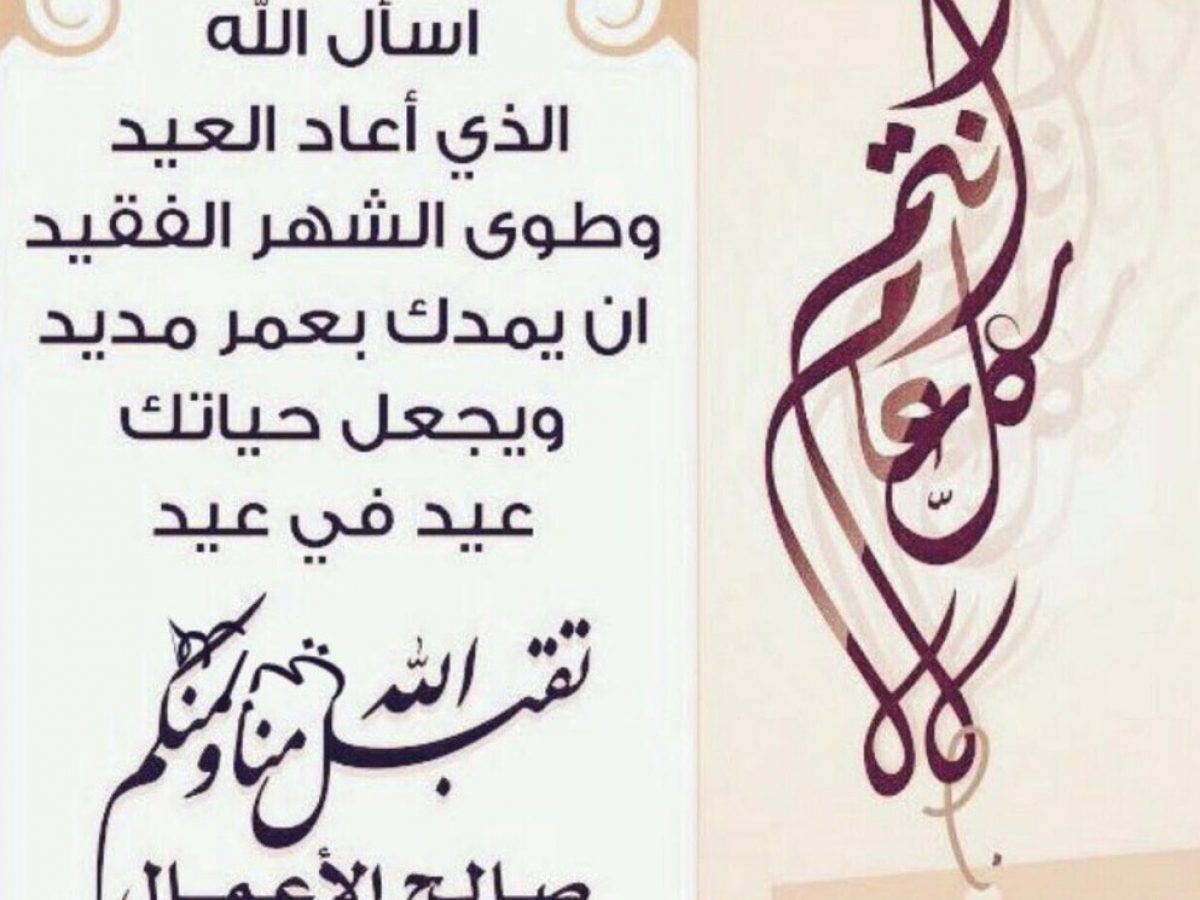 اسأل الله
الذي أعاد العيد
وطوى الشهر الفقيد
ان يمدك بعمر مديد
ويجعل حياتك
عيد في عيد
تقبل الله منا ومنكم
صالح الأعمال
كل عام وانتم